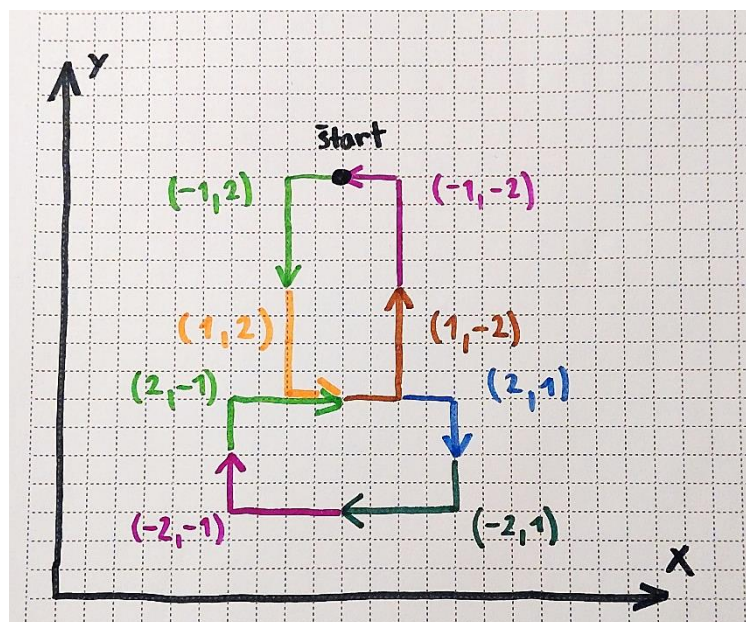 Y
start
(-1,2)
(-1,-2)
(1,2)
(1,-2)
(2,-1)
(2,1)
(-2,-1)
(-2,1)
X